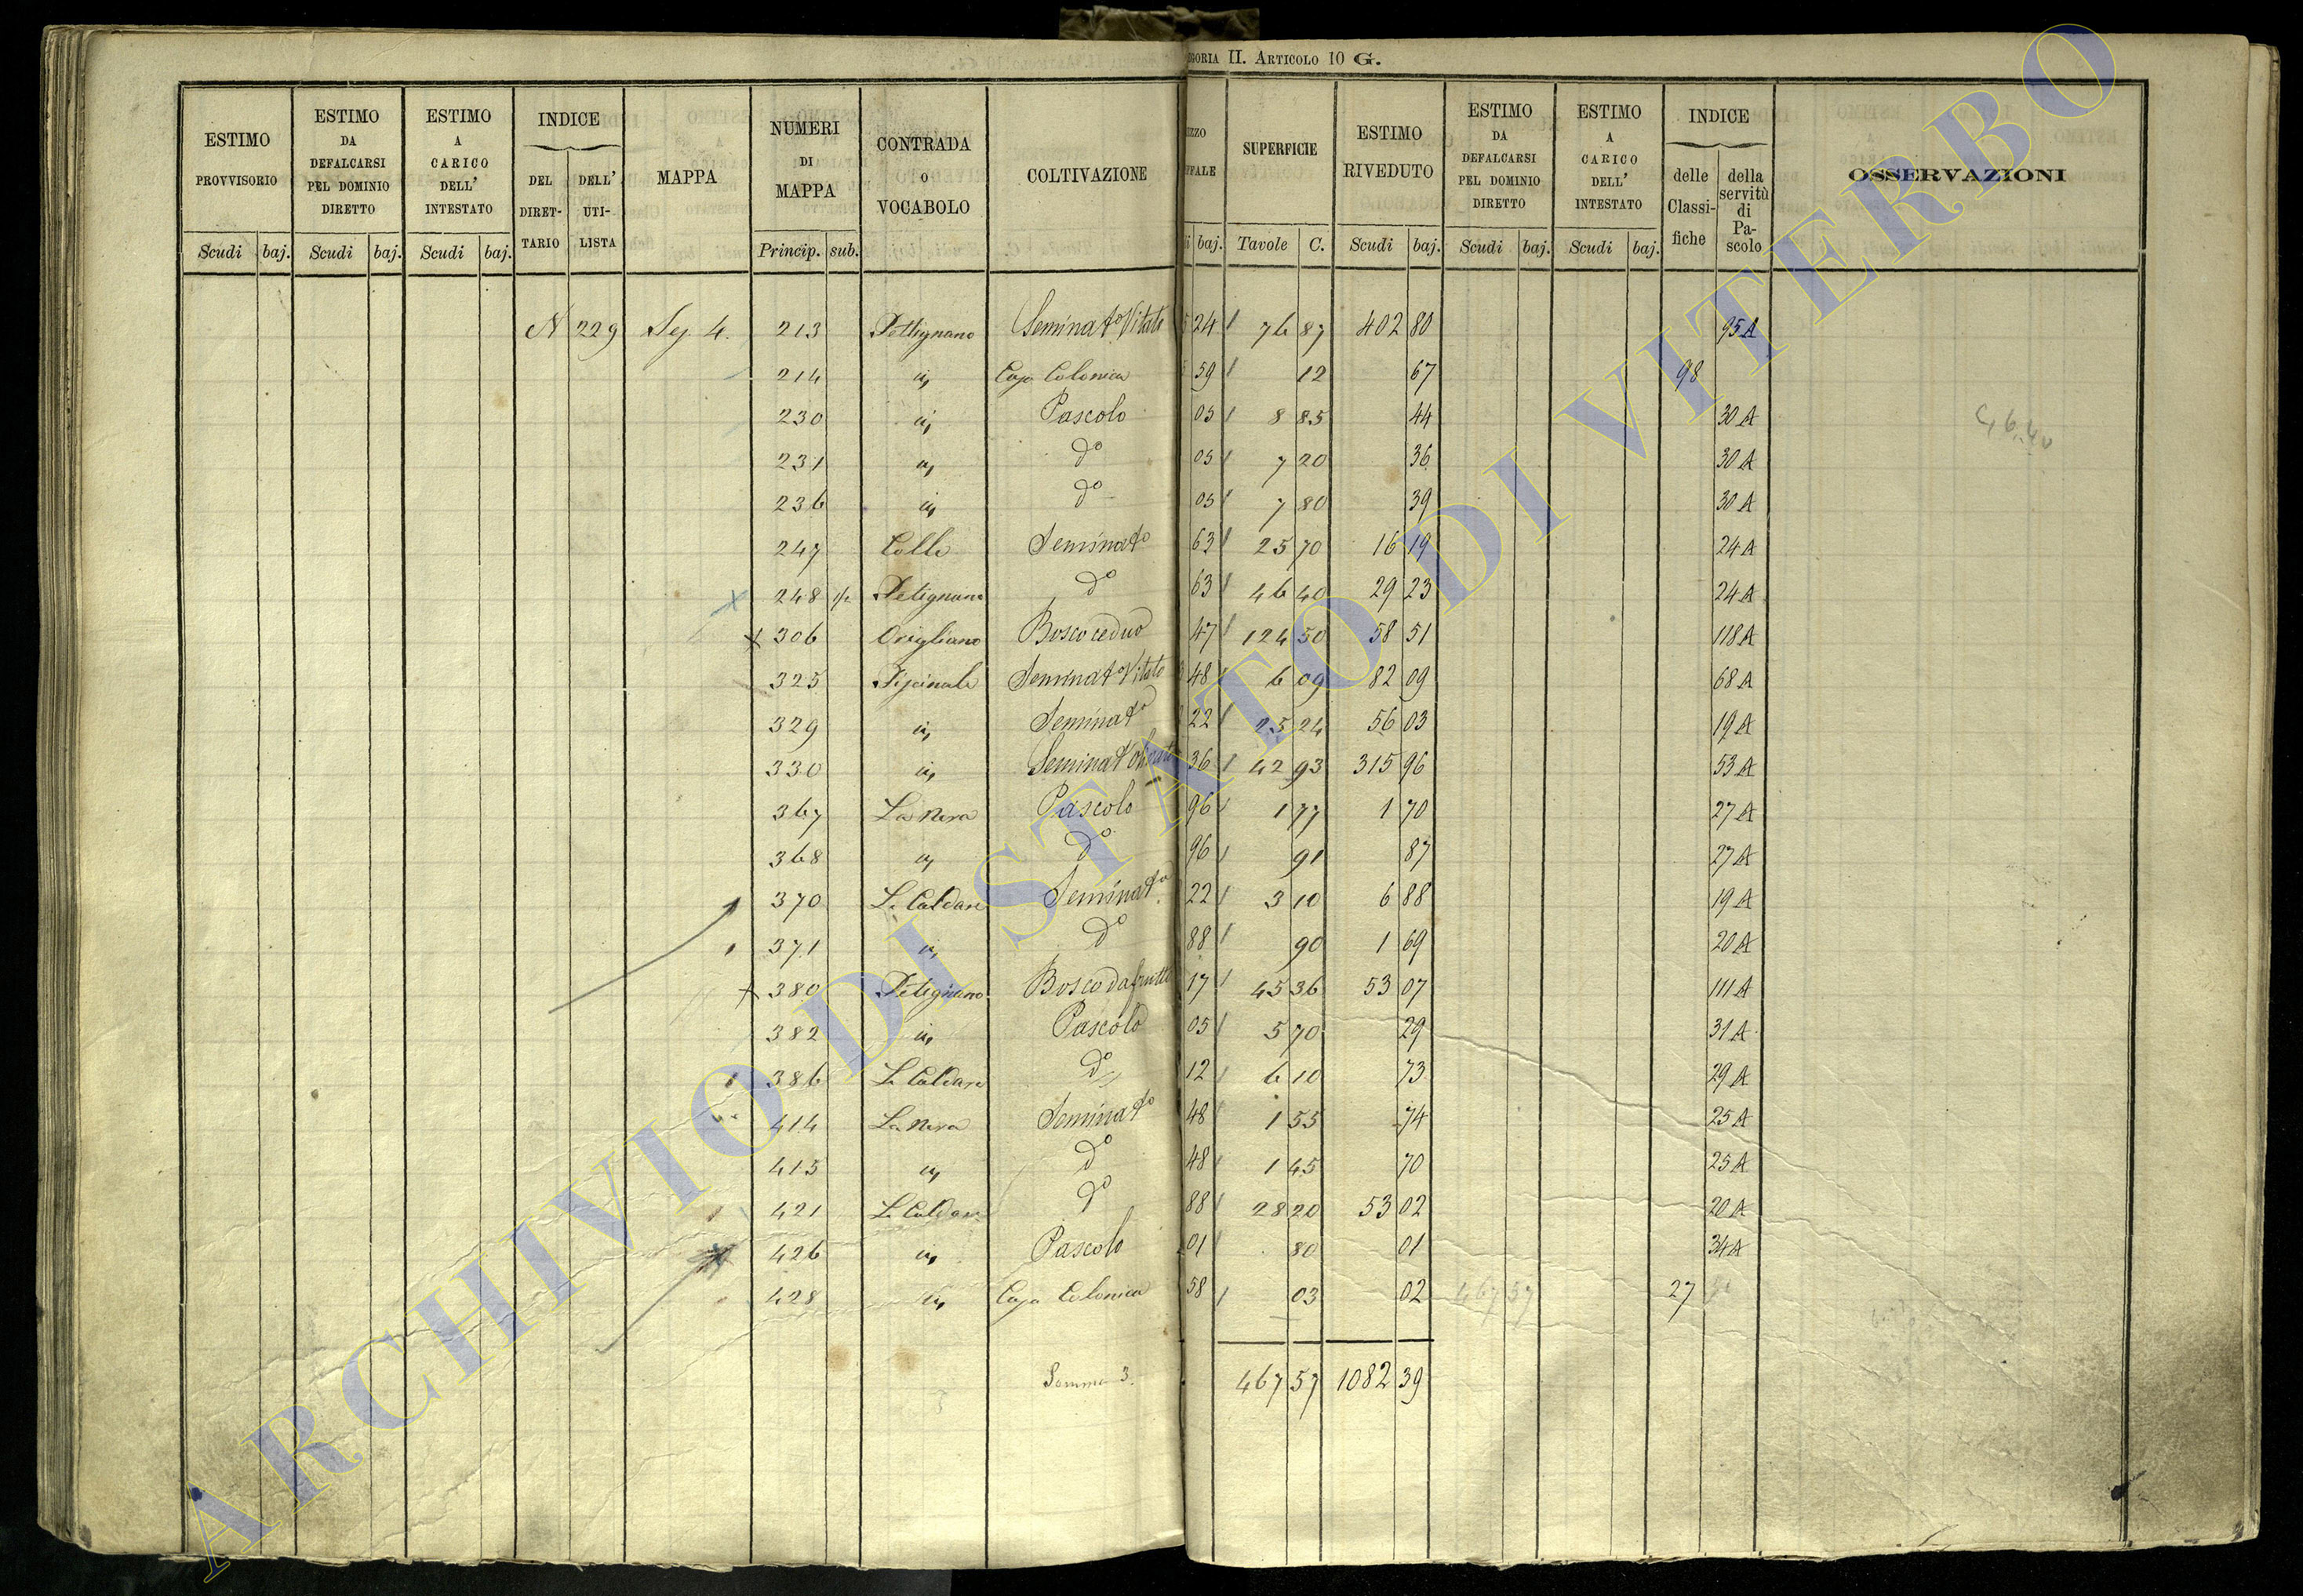 GORIA II. ARTICOLO 10 G.
ESTIMO PROVVISORIO
ESTIMO DA DEFALCARSI PEL DOMINIO DIRETTO
ESTIMO A CARICO DELL' INTESTATO
INDICE
DEL DIRETTARIO
DELL' UTILISTA
MAPPA
NUMERI DI MAPPA
CONTRADA O VOCABOLO
COLTIVAZIONE
IZZO FFALE
SUPERFICIE
ESTIMO RIVEDUTO
ESTIMO DA DEFALCARSI PEL DOMINIO DIRETTO
ESTIMO A CARICO DELL' INTESTATO
INDICE
delle Classifiche
della servitù di Pascolo
OSSERVAZIONI
Scudi baj. Scudi baj. Scudi baj. Princip. sub. baj. Tavole C. Scudi baj. Scudi baj. Scudi baj.
N 229 Sez. 4. 213 Pettignano Seminato Vitato 24 76 87 402 80 95 A
214 id Casa Colonica 59 12 67 98
230 id Pascolo 05 8 85 44 30 A
231 id do 05 7 20 36 30 A
236 id do 05 7 80 39 30 A
247 Colle Seminato 63 25 70 16 19 24 A
248 1/2 Petignano do 63 46 40 29 23 24 A
306 Origliano Bosco ceduo 47 124 50 58 51 118 A
325 Piscinale Seminato Vitato 48 6 09 82 09 68 A
329 id Seminato 22 25 24 56 03 19 A
330 id Seminato Olivato 36 42 93 315 96 53 A
367 La Nera Pascolo 96 1 77 1 70 27 A
368 id do 96 91 87 27 A
370 Le Caldare Seminato 22 3 10 6 88 19 A
371 id do 88 90 1 69 20 A
380 Petignano Bosco da frutto 17 45 36 53 07 111 A
382 id Pascolo 05 5 70 29 31 A
386 Le Caldare do 12 6 10 73 29 A
414 La Nera Seminato 48 1 55 74 25 A
415 id do 48 1 45 70 25 A
421 Le Caldare do 88 28 20 53 02 20 A
426 id Pascolo 01 80 01 34 A
428 id Casa Colonica 58 03 02 467 57 27
Somma 3. 467 57 1082 39
46.40
ARCHIVIO DI STATO DI VITERBO